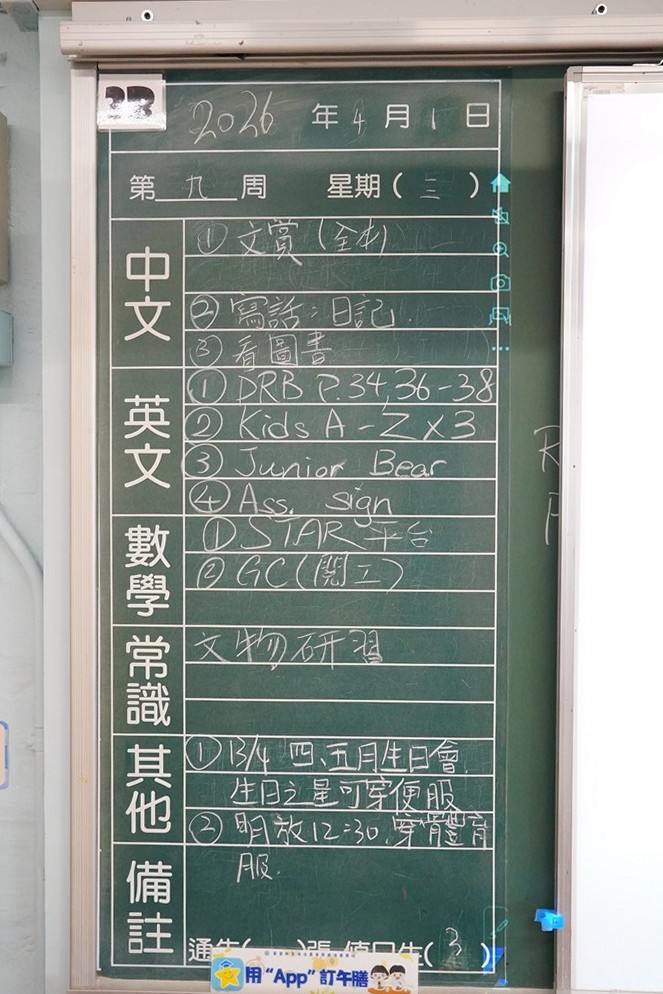 3B
2026 年 4 月 1 日
第 九 周 星期( 三 )
中文
① 文賞(全本)
② 寫話:日記
③ 看圖書
英文
① DRB P.34,36-38
② Kids A-Z x3
③ Junior Bear
④ Ass. sign
數學
① STAR 平台
② GC(開工)
常識
文物研習
其他
① 13/4 四、五月生日會,
生日之星可穿便服
② 明放12:30,穿體育
服.
備註
張 值日生( 3 )
用“App”訂午膳